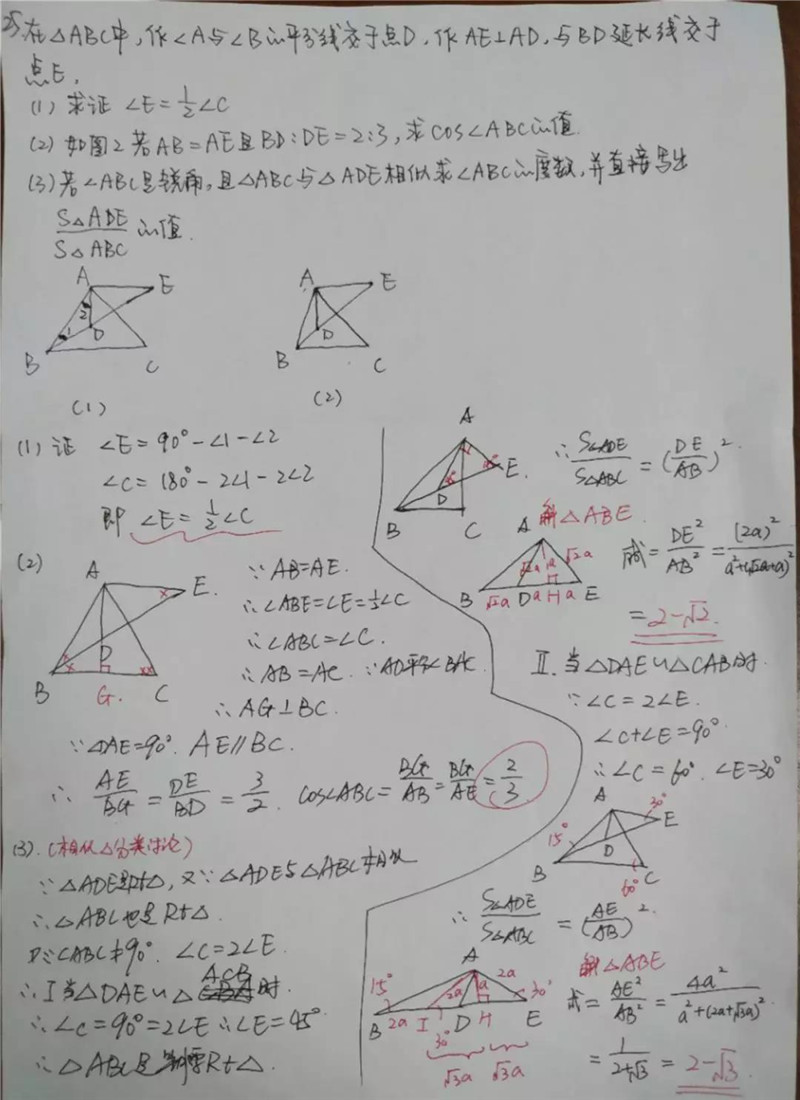 25 在△ABC中, 作∠A与∠B的平分线交于点D, 作AE⊥AD, 与BD延长线交于
点E,
(1) 求证 ∠E=1/2∠C
(2) 如图2 若AB=AE且BD:DE=2:3, 求cos∠ABC的值.
(3) 若∠ABC是锐角, 且△ABC与△ADE相似求∠ABC的度数, 并直接写出
S△ADE/S△ABC 的值.
A E 2 1 D B C
(1)
A E D B C
(2)
(1) 证 ∠E=90°-∠1-∠2
∠C=180°-2∠1-2∠2
即 ∠E=1/2∠C
(2)
A E. × D × ×× B G. C
∵AB=AE.
∴∠ABE=∠E=1/2∠C
∴∠ABC=∠C.
∴AB=AC. ∵AD平分∠BAC
∴AG⊥BC.
∵∠DAE=90°. AE∥BC.
∴ AE/BG=DE/BD=3/2. cos∠ABC=BG/AB=BG/AE=2/3
(3). (相似△分类讨论)
∵△ADE是Rt△, 又∵△ADE与△ABC相似
∴△ABC也是Rt△.
∵∠ABC≠90°. ∠C=2∠E.
∴I当△DAE∽△ACB时.
∴∠C=90°=2∠E ∴∠E=45°
∴△ABC是等腰Rt△.
A E. D B C
∴ S△ADE/S△ABC=(DE/AB)².
解△ABE.
A √2a a √2a B √2a D a H a E
式=DE²/AB²=(2a)²/a²+(√2a+a)²
=2-√2.
Ⅱ. 当△DAE∽△CAB时.
∵∠C=2∠E.
∠C+∠E=90°
∴∠C=60°. ∠E=30°
A 30° E 15° D B 60° C
∴ S△ADE/S△ABC=(AE/AB)².
解△ABE
A 15° 2a a 2a 30° B 2a I D H E
30°
√3a √3a
式=AE²/AB²=4a²/a²+(2a+√3a)²
=1/2+√3=2-√3